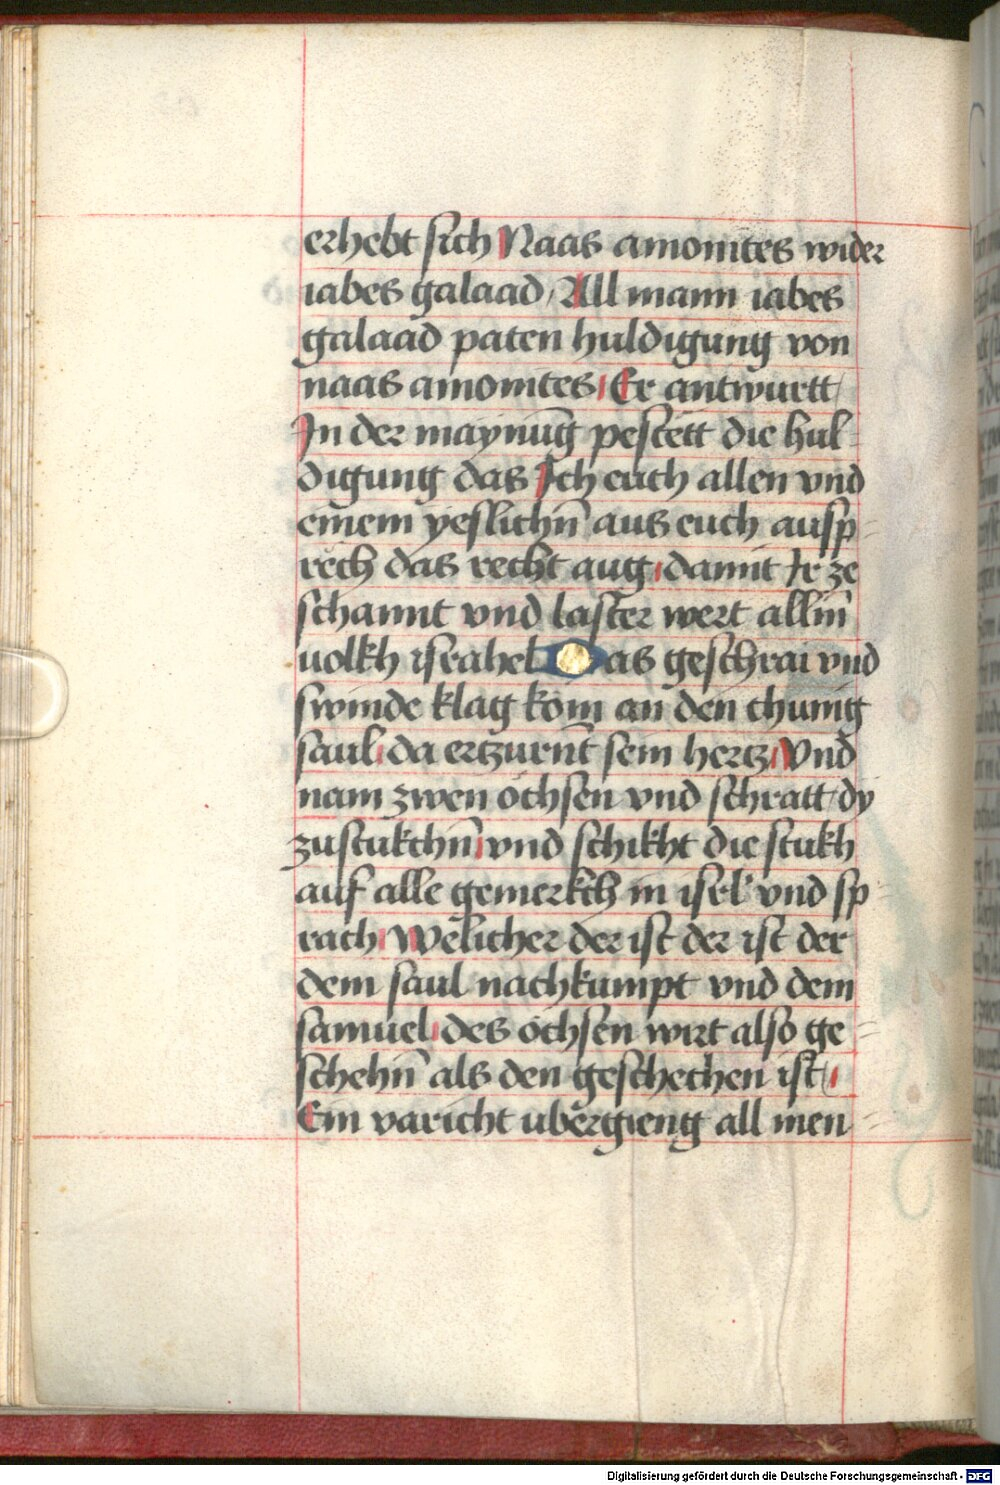 erhebt sich Naas amonites wider
iabes galaad, All mann iabes
galaad paten huldigung von
naas amonites Er antwurtt
In der maynu̅g pestett die hul
digung das Ich euch allen vnd
einem yeslichn̅ aus euch ausp
rech das recht aug, damit Ir ze
schannt vnd laster wert allm̅
volkh israhel Das geschrai vnd
swinde klag kom an den chunig
saul, da ertzurnt sein hertz, Vnd
nam zwen ochsen vnd schratt dy
zustukchn̅ vnd schikht die stukh
auf alle gemerkch in isrl̅ vnd sp
rach Welicher der ist der ist der
dem saul nachkumpt vnd dem
samuel, des ochsen wirt also ge
schehn̅ als den geschechen ist,
Ein varicht ubergieng all men
Digitalisierung gefördert durch die Deutsche Forschungsgemeinschaft - DFG